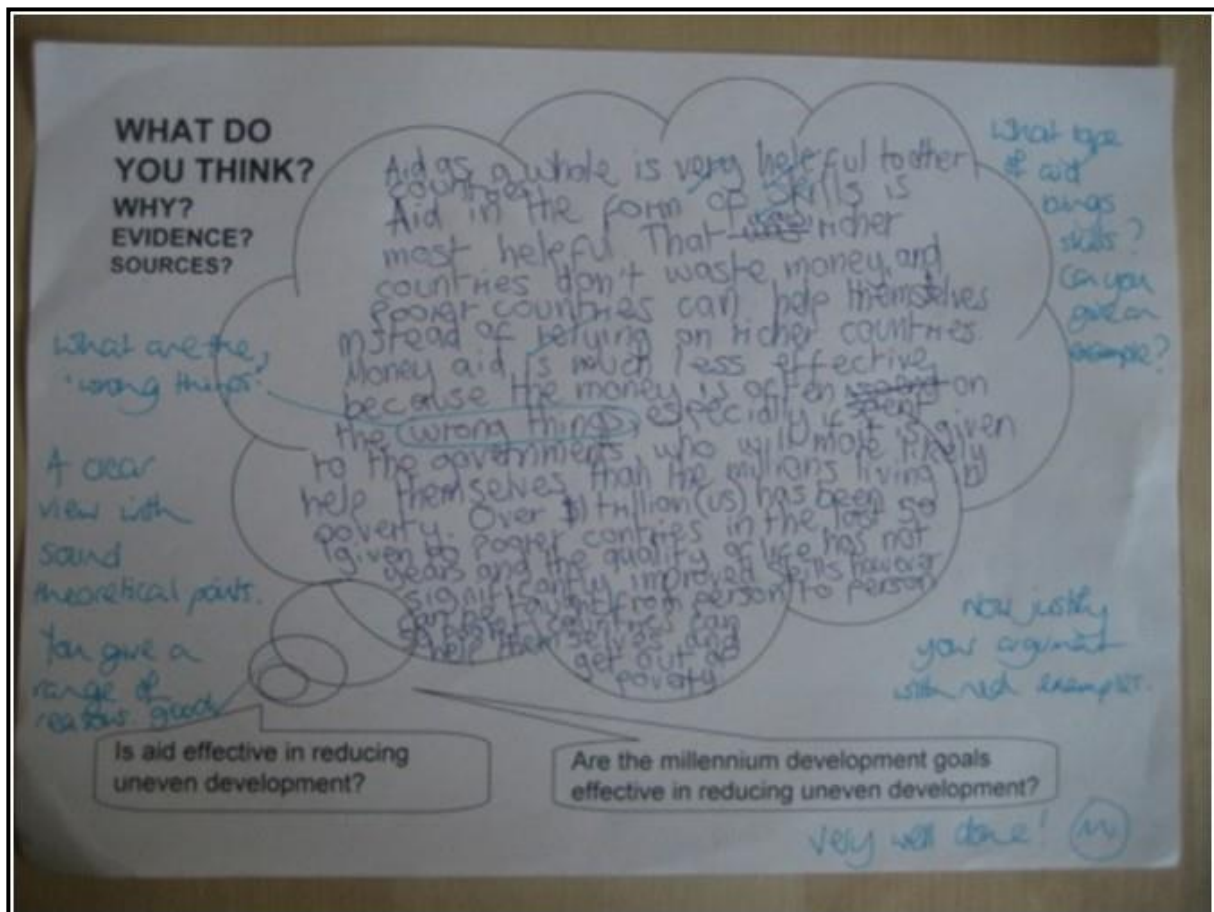 WHAT DO
YOU THINK?
WHY?
EVIDENCE?
SOURCES?
Aid as a whole is very helpful to other
countries
Aid in the form of skills is
most helpful That richer
countries don't waste money, and
poorer countries can help themselves
instead of relying on richer countries.
Money aid is much less effective
because the money is often spent on
the wrong things, especially if it is given
to the governments, who will more likely
help themselves than the millions living in
poverty. Over $1 trillion (us) has been
given to poorer contries in the last 50
years and the quality of life has not
significantly improved skills however
can be taught from person to person
so poorer countries can
help themselves and
get out of
poverty
What type
of aid
brings
skills?
Can you
give an
example?
What are the
'wrong things'
A clear
view with
sound
theoretical points.
You give a
range of
reasons. good
Now justify
your argument
with examples.
Is aid effective in reducing
uneven development?
Are the millennium development goals
effective in reducing uneven development?
Very well done!